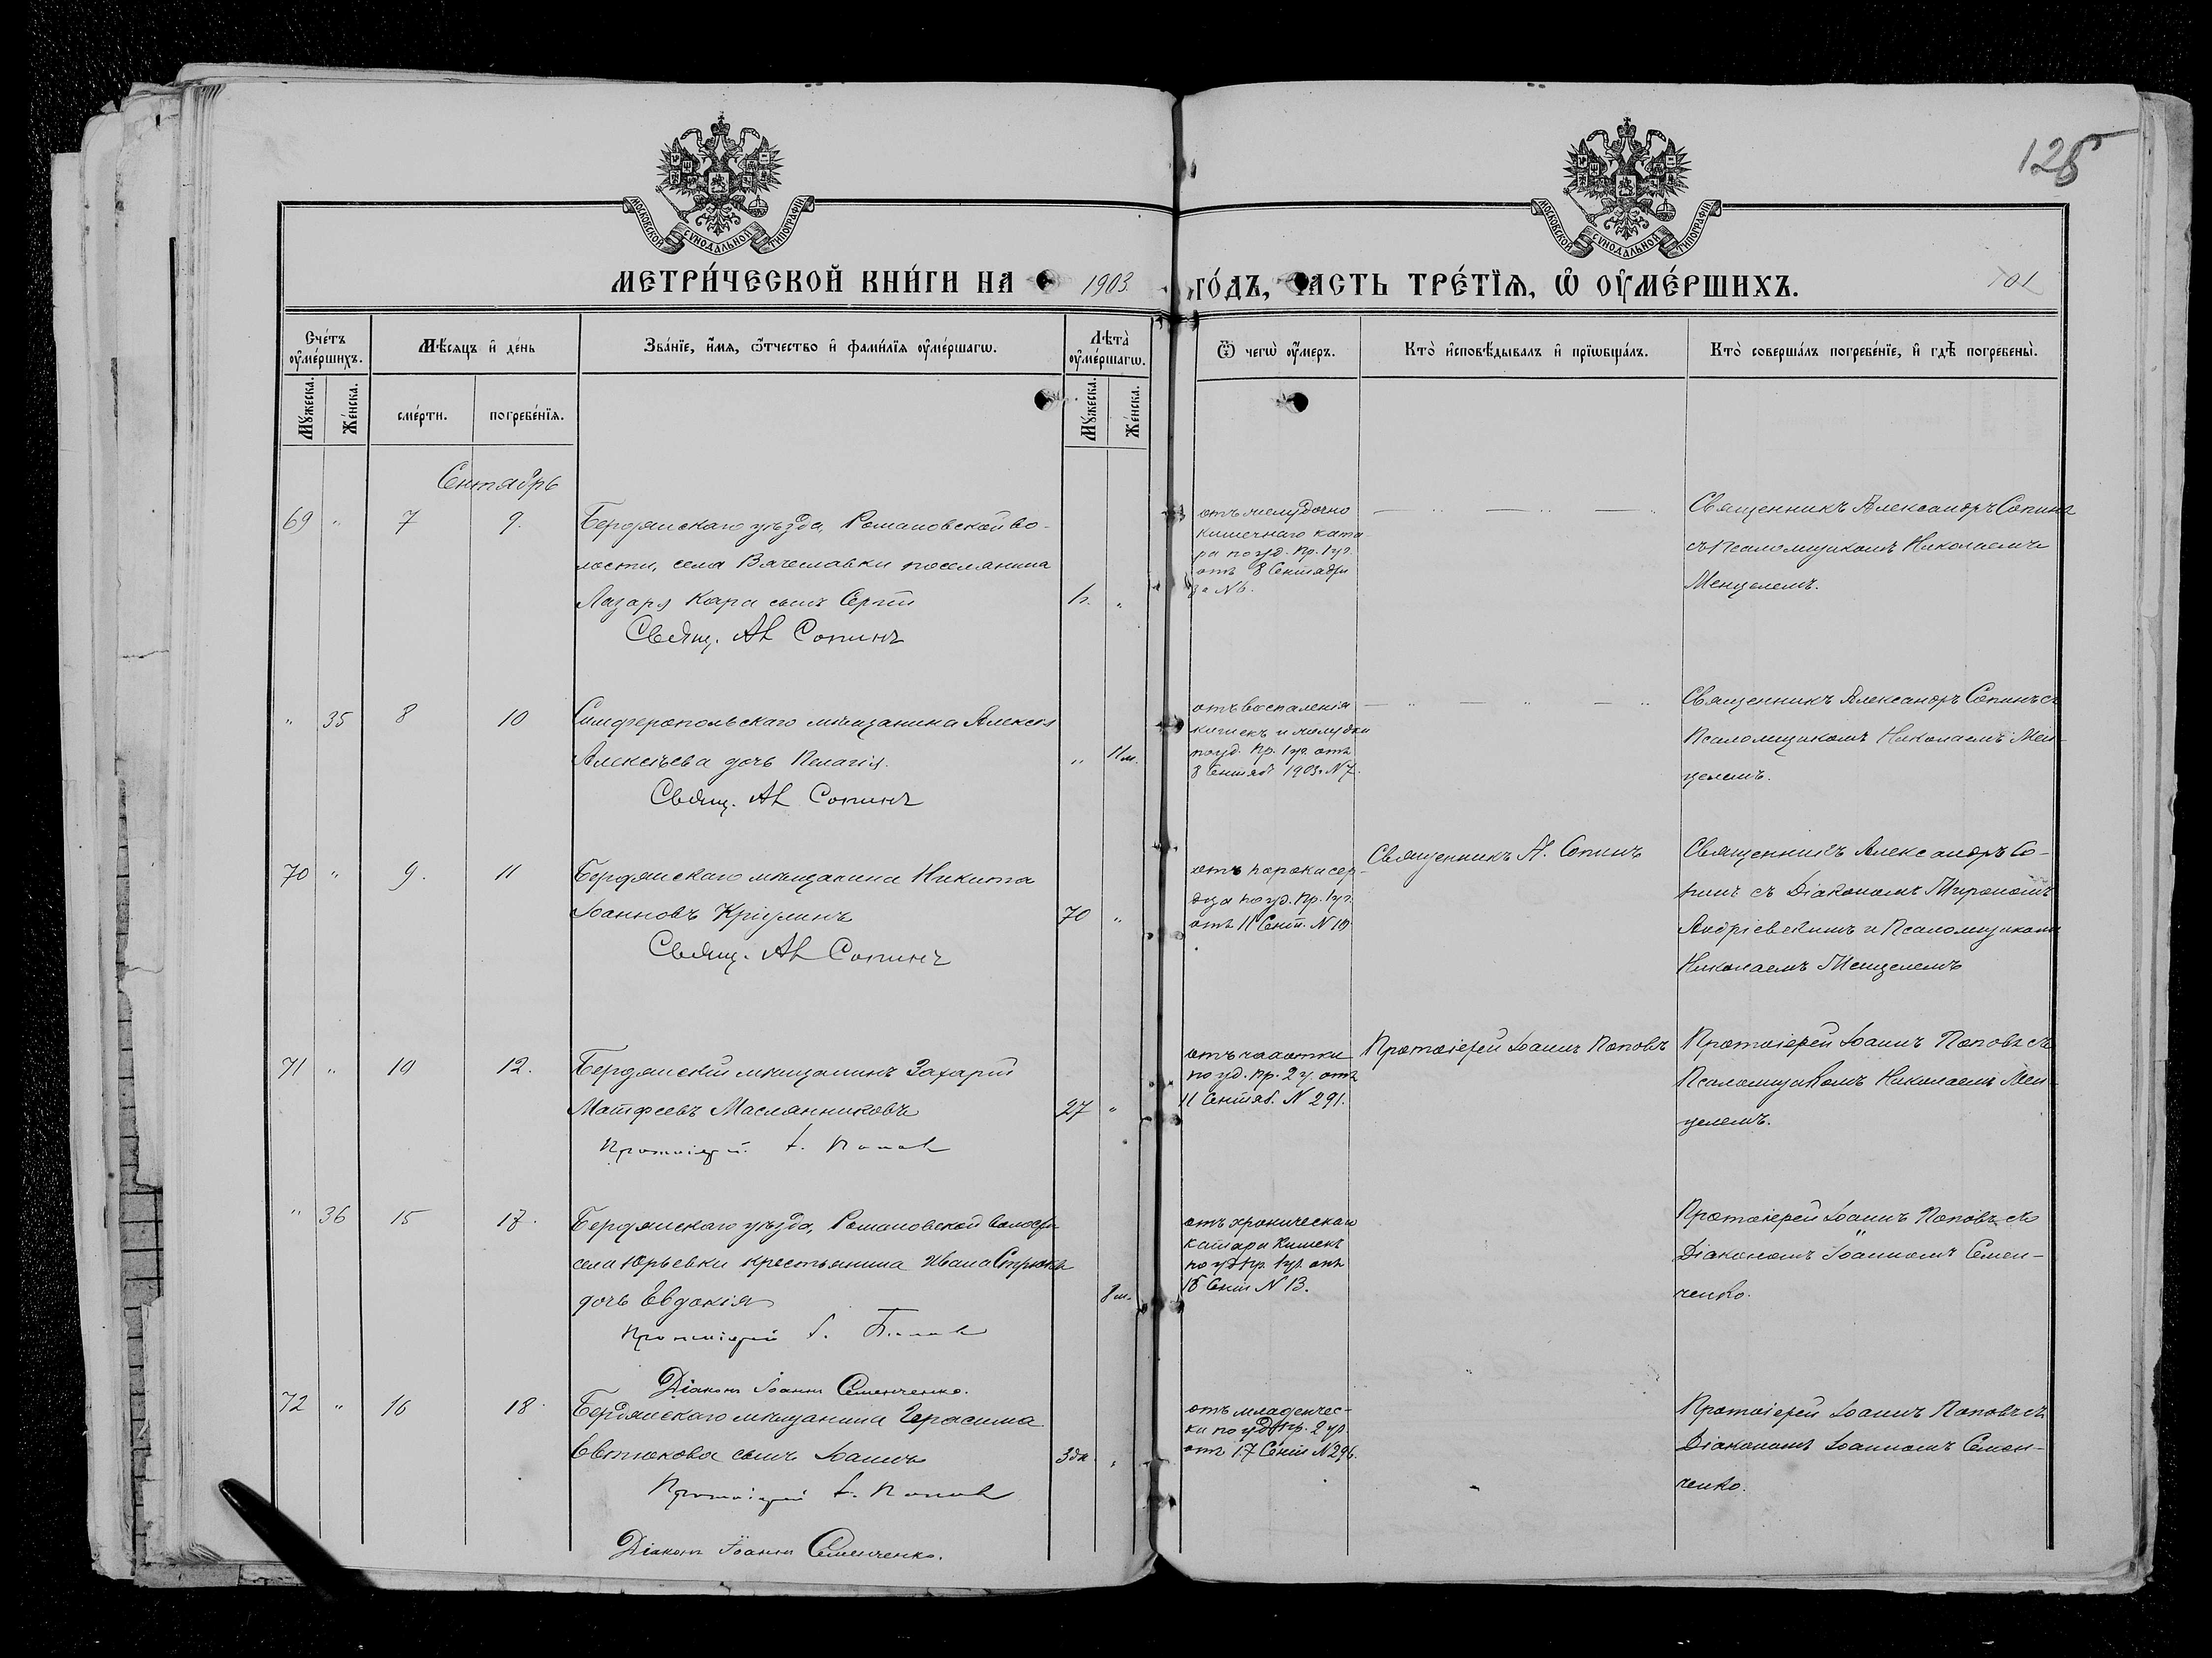 125
МОСКОВСКОЙ СУНОДАЛЬНОЙ ТИПОГРАФІИ
МОСКОВСКОЙ СУНОДАЛЬНОЙ ТИПОГРАФІИ
МЕТРИ́ЧЕСКОЙ КНИ́ГИ НА 1903 ГО́ДЪ, ЧАСТЬ ТРЕ́ТЇѦ, Ѽ ОУ҆МЕ́РШИХЪ.
101
Сче́тъ оу҆ме́ршихъ.
Мѣ́сяцъ и҆ де́нь
Зва́нїе, и҆́мѧ, ѻ҆́тчество и҆ фами́лїѧ оу҆ме́ршагѡ.
Лѣ́та оу҆ме́ршагѡ.
Ѿ чегѡ̀ оу҆́меръ.
Кто̀ и҆сповѣ́дывалъ и҆ прїѡбща́лъ.
Кто̀ соверша́лъ погребе́нїе, и҆ гдѣ̀ погребены̀.
Мꙋ́жеска.
Же́нска.
сме́рти.
погребе́нїѧ.
Мꙋ́жеска.
Же́нска.
Сентябрь
69 " 7 9.
Бердянскаго уѣзда, Романовской во-
лости, села Вячеславки поселянина
Лазаря Кара сынъ Сергій
Свящ. Ал Сопинъ
отъ желудочно
кишечнаго ката-
ра по уд. пр. 1 уч.
отъ 8 Сентября
за N 6.
Священникъ Александръ Сопинъ
съ Псаломщикомъ Николаемъ
Менцелемъ.
" 35 8 10
Симферопольскаго мѣщанина Алексѣя
Алексѣева дочь Пелагія.
" 11 м.
Свящ. Ал Сопинъ
отъ воспаленія
кишекъ и желудка
по уд. пр. 1 уч. отъ
8 Сентяб. 1903 N 7.
Священникъ Александръ Сопинъ съ
Псаломщикомъ Николаемъ Мен-
целемъ.
70 " 9. 11
Бердянскаго мѣщанина Никита
Іоанновъ
70 "
Свящ. Ал Сопинъ
отъ порока сер-
дца по уд. пр. 1 уч.
отъ 11 Сент. N 10.
Священникъ А. Сопинъ
Священникъ Александръ Со-
пинъ съ Діакономъ Мирономъ
Андріевскимъ и Псаломщикомъ
Николаемъ Менцелемъ
71 " 10 12.
Бердянскій мѣщанинъ Захарій
Матфеевъ Маслянниковъ
27 "
Протоіерей І. Попов
отъ чахотки
по уд. пр. 2 у. отъ
11 Сентяб. N 291.
Протоіерей Іоаннъ Поповъ
Протоіерей Іоаннъ Поповъ съ
Псаломщикомъ Николаемъ Мен-
целемъ.
" 36 15 17.
Бердянскаго уѣзда, Романовской волости
села Юрьевки крестьянина Ивана
дочь Евдокія
8 м.
Протоіерей І. Попов
Діаконъ Іоаннъ Семенченко.
отъ хроническаго
катара кишекъ
по уд. пр. 1 уч. отъ
16 Сент N 13.
Протоіерей Іоаннъ Поповъ съ
Діакономъ Іоанномъ Семен-
ченко.
72 " 16 18.
Бердянскаго мѣщанина Герасима
Евтюкова сынъ Іоаннъ
3 дн. "
Протоіерей І. Попов
Діаконъ Іоаннъ Семенченко.
отъ младенчес-
ки по уд. пр. 2 уч.
отъ 17 Сент N 296.
Протоіерей Іоаннъ Поповъ съ
Діакономъ Іоанномъ Семен-
ченко.